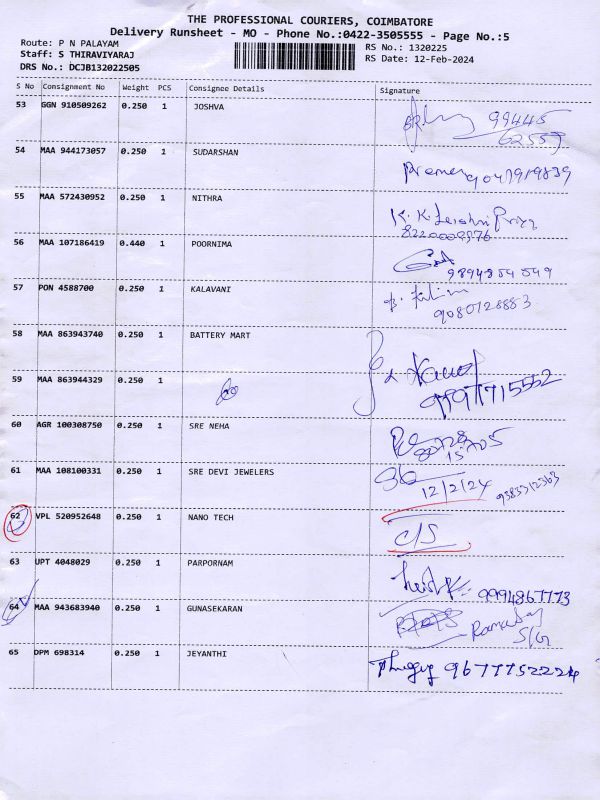 THE PROFESSIONAL COURIERS, COIMBATORE
Delivery Runsheet - MO - Phone No.:0422-3505555 - Page No.:5
Route: P N PALAYAM
Staff: S THIRAVIYARAJ
DRS No.: DCJB132022505
RS No.: 1320225
RS Date: 12-Feb-2024
S No Consignment No Weight PCS Consignee Details Signature
53 GGN 910509262 0.250 1 JOSHVA 99445
62559
54 MAA 944173057 0.250 1 SUDARSHAN
55 MAA 572430952 0.250 1 NITHRA
56 MAA 107186419 0.440 1 POORNIMA
9894854549
57 PON 4588700 0.250 1 KALAVANI
9080728883
58 MAA 863943740 0.250 1 BATTERY MART
59 MAA 863944329 0.250 1
60 AGR 100308750 0.250 1 SRE NEHA
61 MAA 108100331 0.250 1 SRE DEVI JEWELERS
12/2/24
62 VPL 520952648 0.250 1 NANO TECH C/S
63 UPT 4048029 0.250 1 PARPORNAM 9994867773
64 MAA 943683940 0.250 1 GUNASEKARAN
65 DPM 698314 0.250 1 JEYANTHI 9677752224